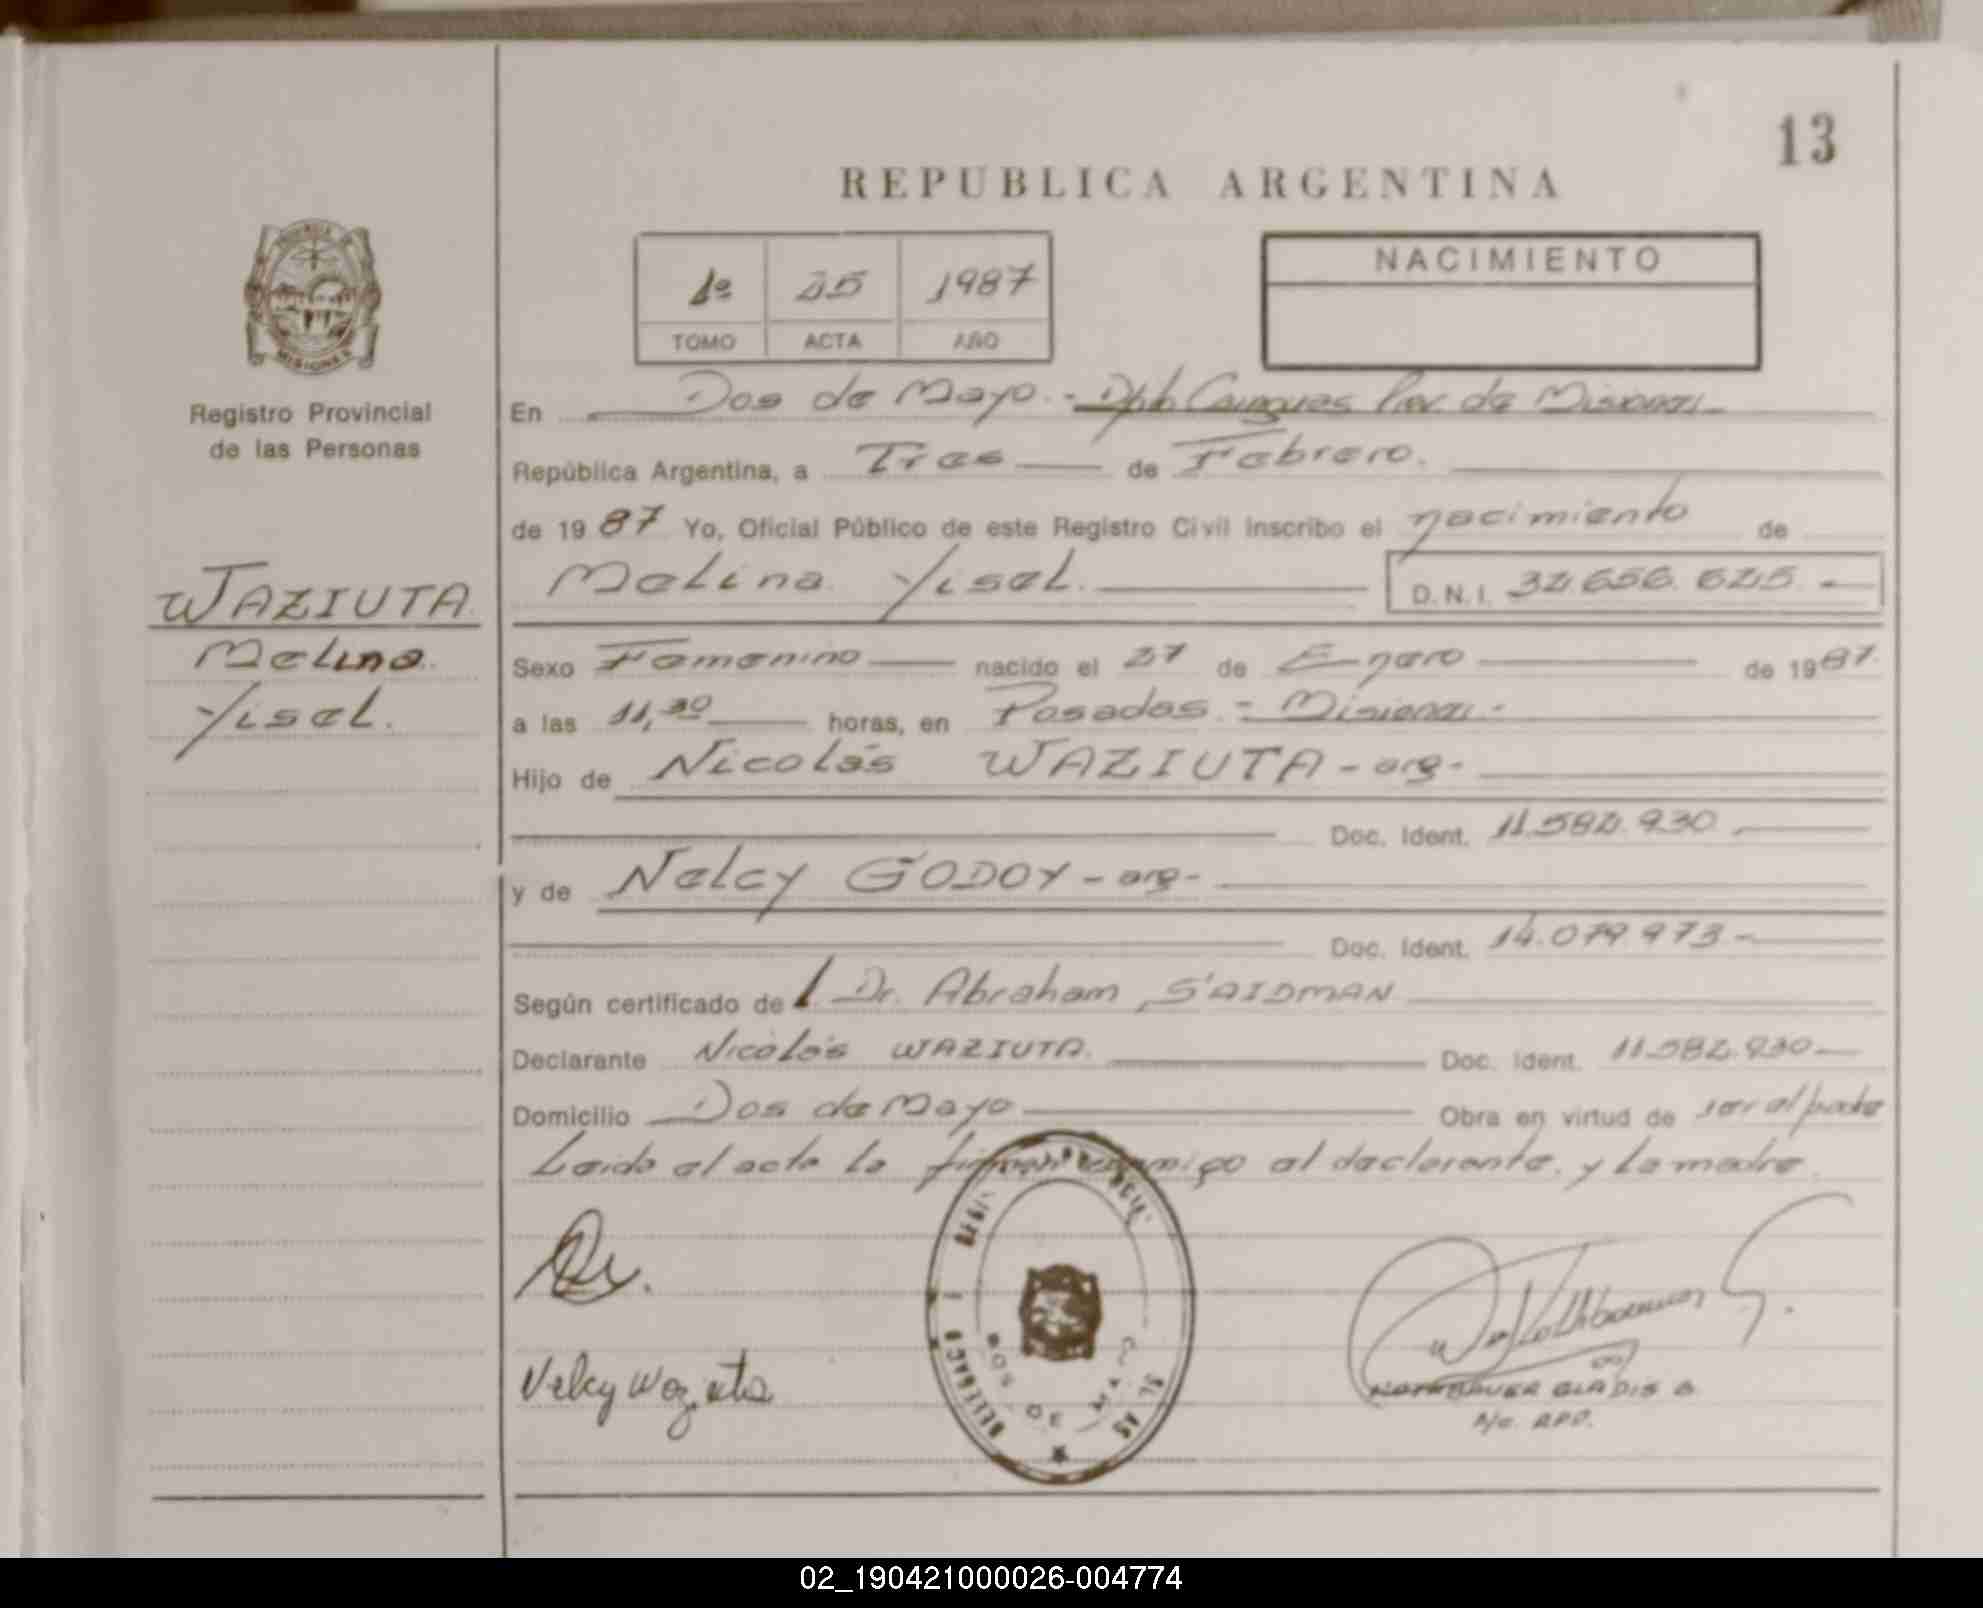 13
REPUBLICA ARGENTINA
1º 25 1987
TOMO ACTA AÑO
NACIMIENTO
MISIONES
Registro Provincial
de las Personas
WAZIUTA
Melina
Yisel.
En Dos de Mayo.- Dpto Cainguas Prov. de Misiones
República Argentina, a Tres de Febrero.
de 1987 Yo, Oficial Público de este Registro Civil inscribo el nacimiento de
Melina Yisel. D.N.I.
Sexo Femenino nacido el 27 de Enero de 1987.
a las 11,30 horas, en Posadas - Misiones.
Hijo de Nicolás WAZIUTA - arg-
Doc. Ident.
y de Nelcy GODOY - arg-
Doc. Ident. 14.079.973-
Según certificado de Dr. Abraham SAIDMAN
Declarante Nicolás WAZIUTA. Doc. Ident.
Domicilio Dos de Mayo Obra en virtud de ser el padre
Leida el acta la firman conmigo el declarante. y la madre.
DOS DE MAYO
Nelcy Waziuta
GLADIS
02_190421000026-004774